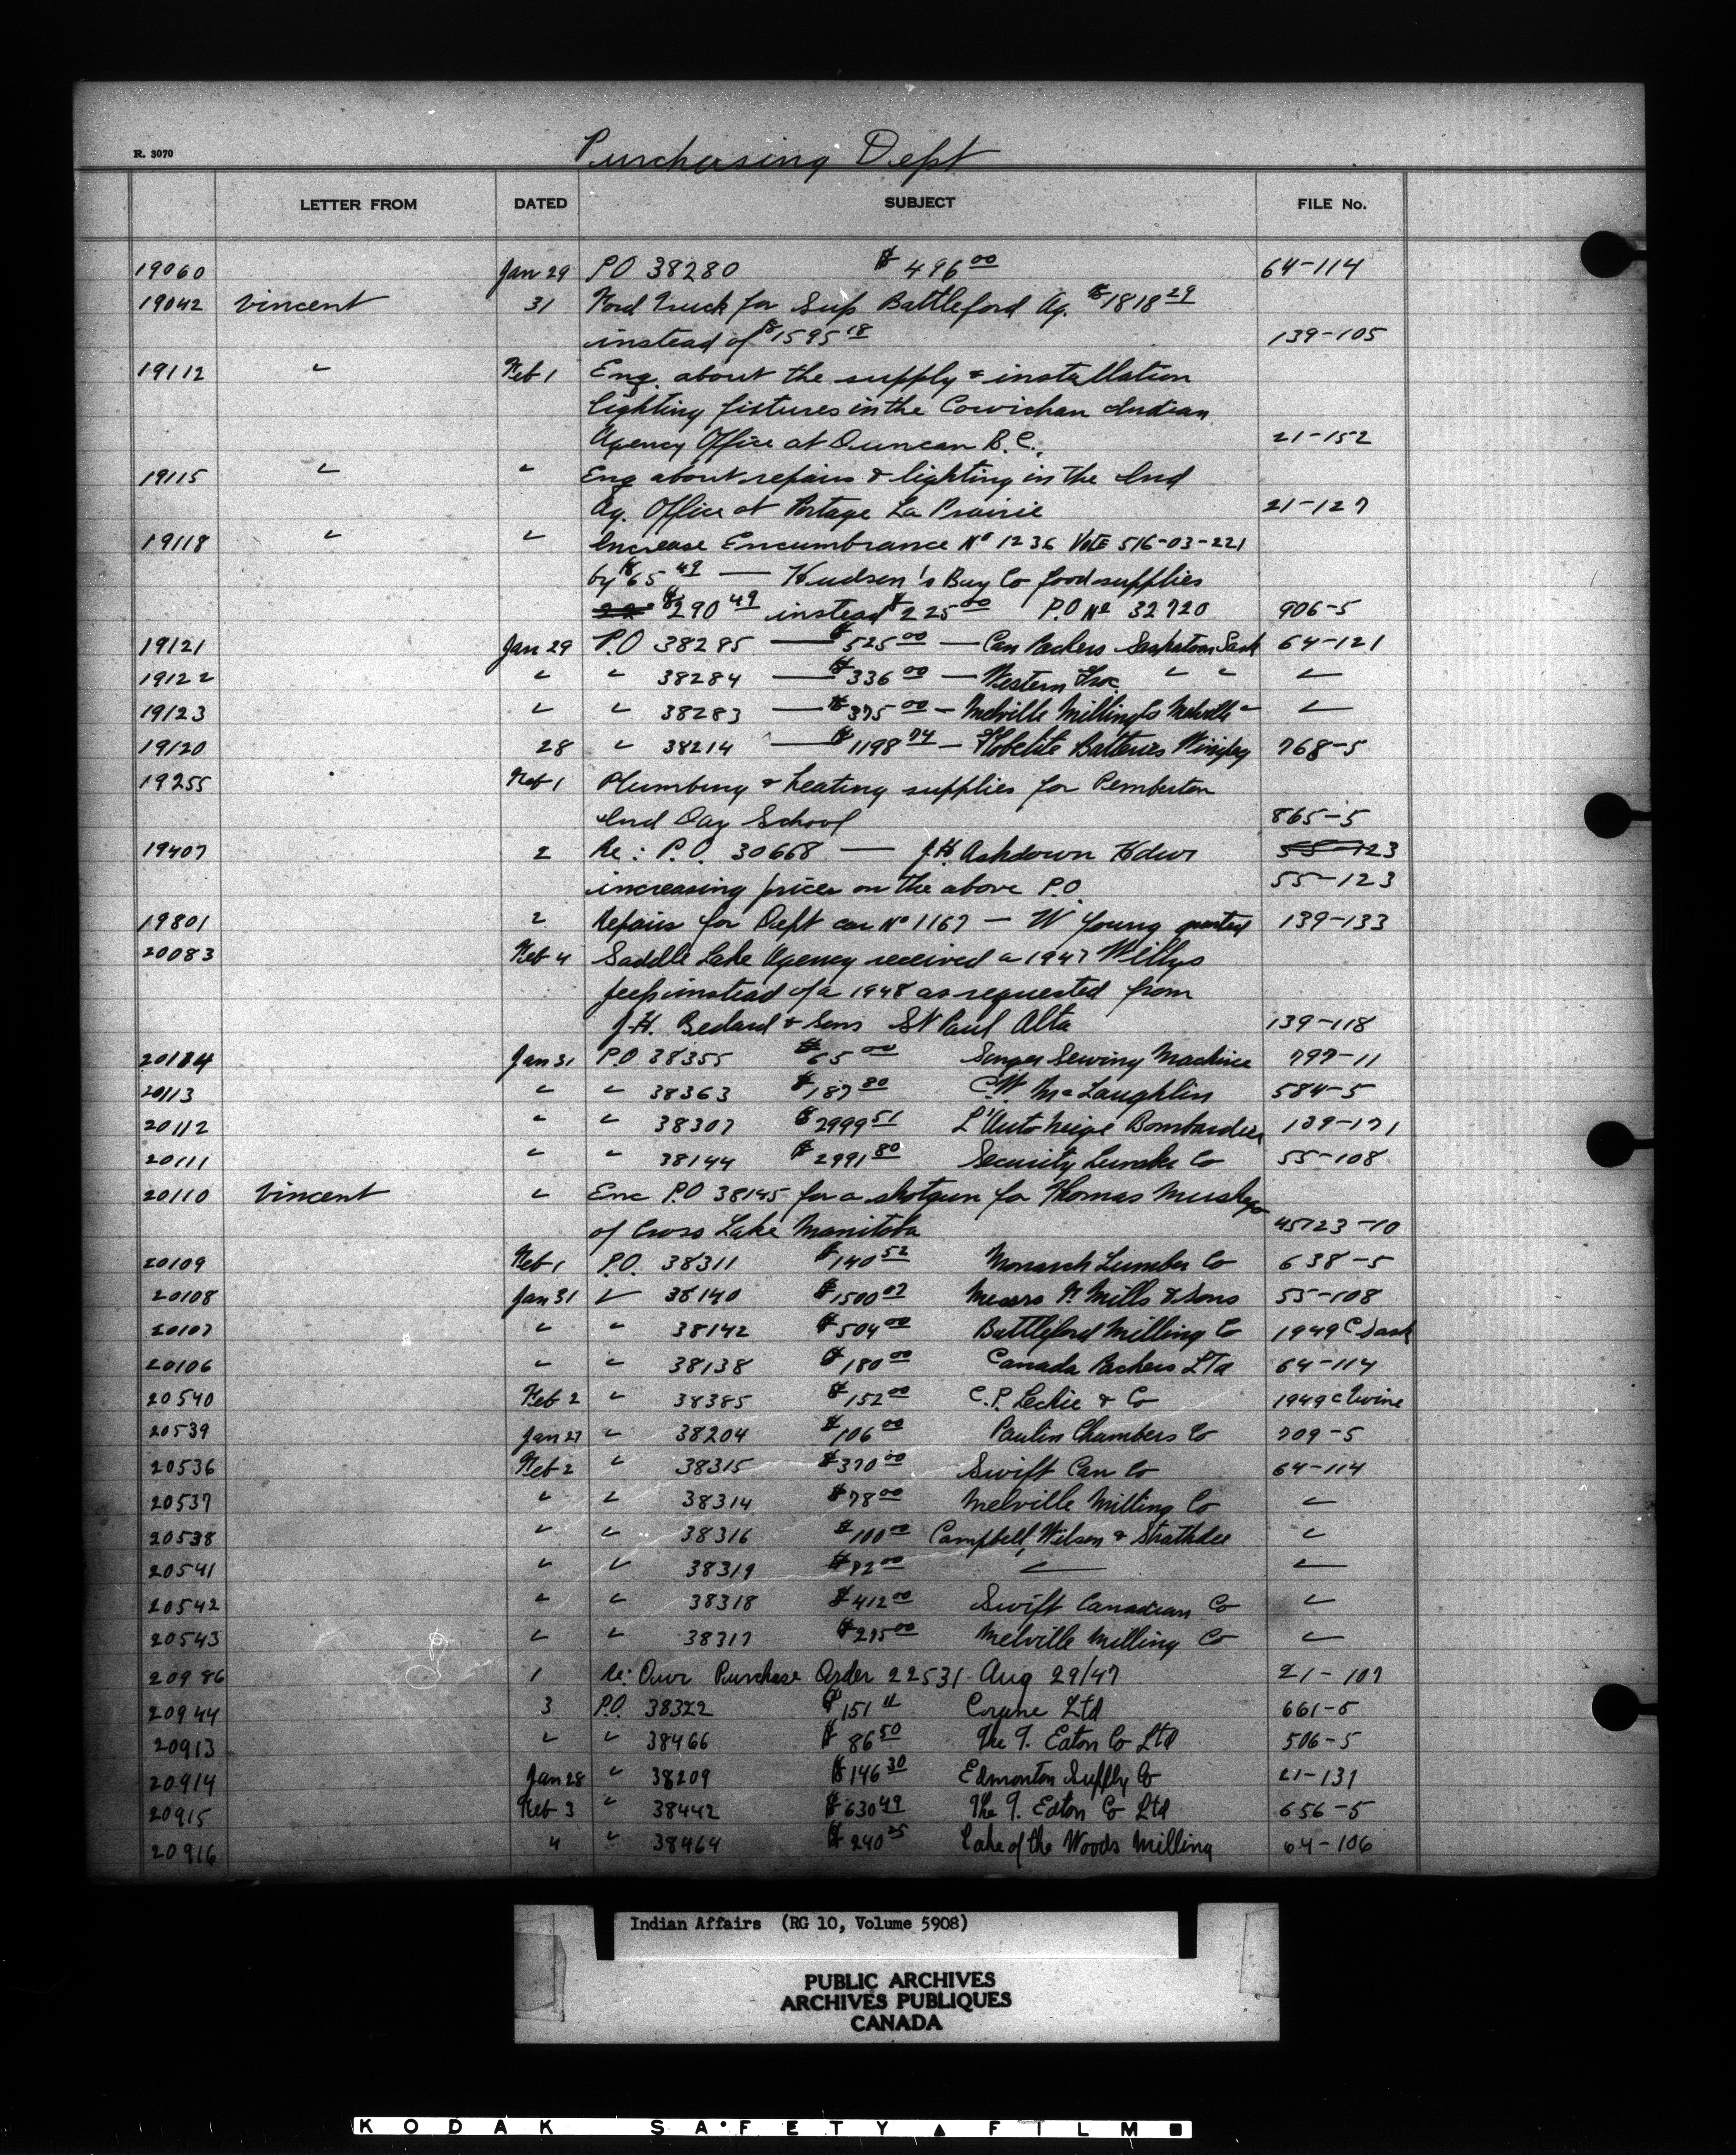 R. 3070
Purchasing Dept
LETTER FROM DATED SUBJECT FILE No.
19060 Jan 29 P.O 38280 $496 00 64-114
19042 Vincent 31 Ford Truck for Sup Battleford Ag. $1818 29
instead of $1595 18 139-105
19112 " Feb 1 Enq. about the supply & installation
lighting fixtures in the Cowichan Indian
Agency Office at Duncan B.C. 21-152
19115 " " Enq about repairs & lighting in the Ind
Ag. Office at Portage La Prairie 21-127
19118 " " Increase Encumbrance No 1236 Vote 516-03-221
by $65 49 — Hudson's Bay Co food supplies
$290 49 instead $225 00 P.O No 32720 906-5
19121 Jan 29 P.O 38285 — $525 00 — Can Packers Saskatoon Sask 64-121
19122 " " 38284 — $336 00 — Western Groc. " " "
19123 " " 38283 — $375 00 — Melville Milling Co Melville " "
19120 28 " 38214 — $1198 74 — Hobelite Batteries Winnipeg 768-5
19255 Feb 1 Plumbing & heating supplies for Pemberton
Ind Day School 865-5
19407 2 Re: P.O. 30668 — J.H. Ashdown Hdwr 55-123
increasing prices on the above P.O 55-123
19801 2 Repairs for Dept car No 1167 — W Young 139-133
20083 Feb 4 Saddle Lake Agency received a 1947 Willys
Jeep instead of a 1948 as requested from
J.H. Bedard & Sons St Paul Alta 139-118
20184 Jan 31 P.O 38355 $65 00 Singer Sewing Machine 797-11
20113 " " 38363 $187 80 C.W. McLaughlin 584-5
20112 " " 38307 $2999 51 L'Auto Neige Bombardier 139-171
20111 " " 38144 $2991 80 Security Lumber Co 55-108
20110 Vincent " Enc P.O 38145 for a shotgun for Thomas Muskego
of Cross Lake Manitoba 45723-10
20109 Feb 1 P.O. 38311 $140 52 Monarch Lumber Co 638-5
20108 Jan 31 " 38140 $1500 07 Messrs N. Mills & Sons 55-108
20107 " " 38142 $504 00 Battleford Milling Co 1949 C Sask
20106 " " 38138 $180 00 Canada Packers LTd 64-114
20540 Feb 2 " 38385 $152 00 C.P. Leckie & Co 1949 c
20539 Jan 27 " 38204 $106 00 Paulin Chambers Co 709-5
20536 Feb 2 " 38315 $370 00 Swift Can Co 64-114
20537 " " 38314 $78 00 Melville Milling Co "
20538 " " 38316 $100 00 Campbell, Wilson & Strathdee "
20541 " " 38319 $82 00 " "
20542 " " 38318 $412 00 Swift Canadian Co "
20543 " " 38317 $275 00 Melville Milling Co "
20986 1 Re: Our Purchase Order 22531 Aug 29/47 21-107
20944 3 P.O. 38322 $151 11 Corane Ltd 661-5
20913 " " 38466 $86 50 The T. Eaton Co Ltd 506-5
20914 Jan 28 " 38209 $146 30 Edmonton Supply Co 21-131
20915 Feb 3 " 38442 $630 49 The T. Eaton Co Ltd 656-5
20916 4 " 38464 $240 25 Lake of the Woods Milling 64-106
Indian Affairs (RG 10, Volume 5908)
PUBLIC ARCHIVES
ARCHIVES PUBLIQUES
CANADA
KODAK SAFETY FILM